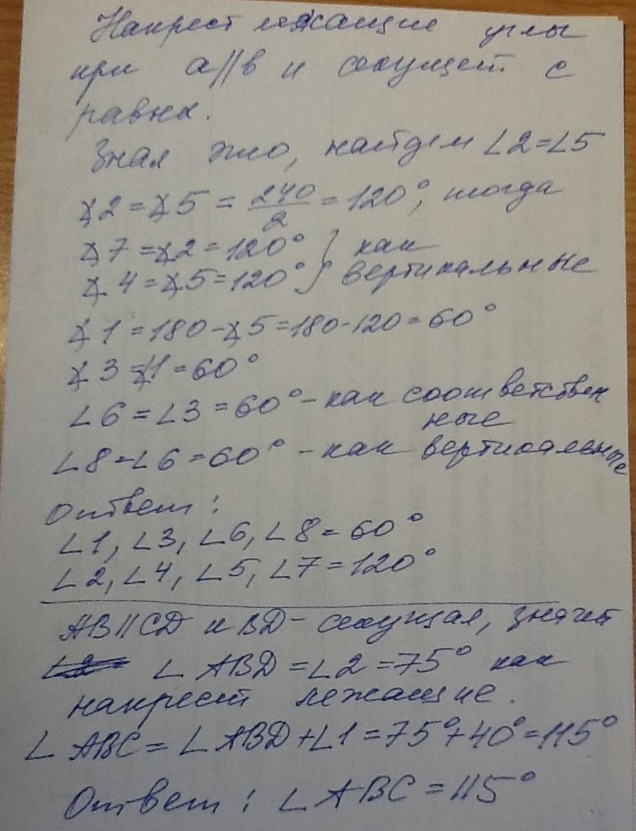 Накрест лежащие углы
при a||b и секущей c
равны.
Зная это, найдем ∠2=∠5
∡2=∡5=240/2=120°, тогда
∡7=∡2=120° } как
∡4=∡5=120° } вертикальные
∡1=180-∡5=180-120=60°
∡3=∡1=60°
∠6=∠3=60° - как соответствен
ные
∠8=∠6=60° - как вертикальные
Ответ:
∠1, ∠3, ∠6, ∠8=60°
∠2, ∠4, ∠5, ∠7=120°
AB||CD и BD - секущая, значит
∠ABD=∠2=75° как
накрест лежащие.
∠ABC=∠ABD+∠1=75°+40°=115°
Ответ: ∠ABC=115°